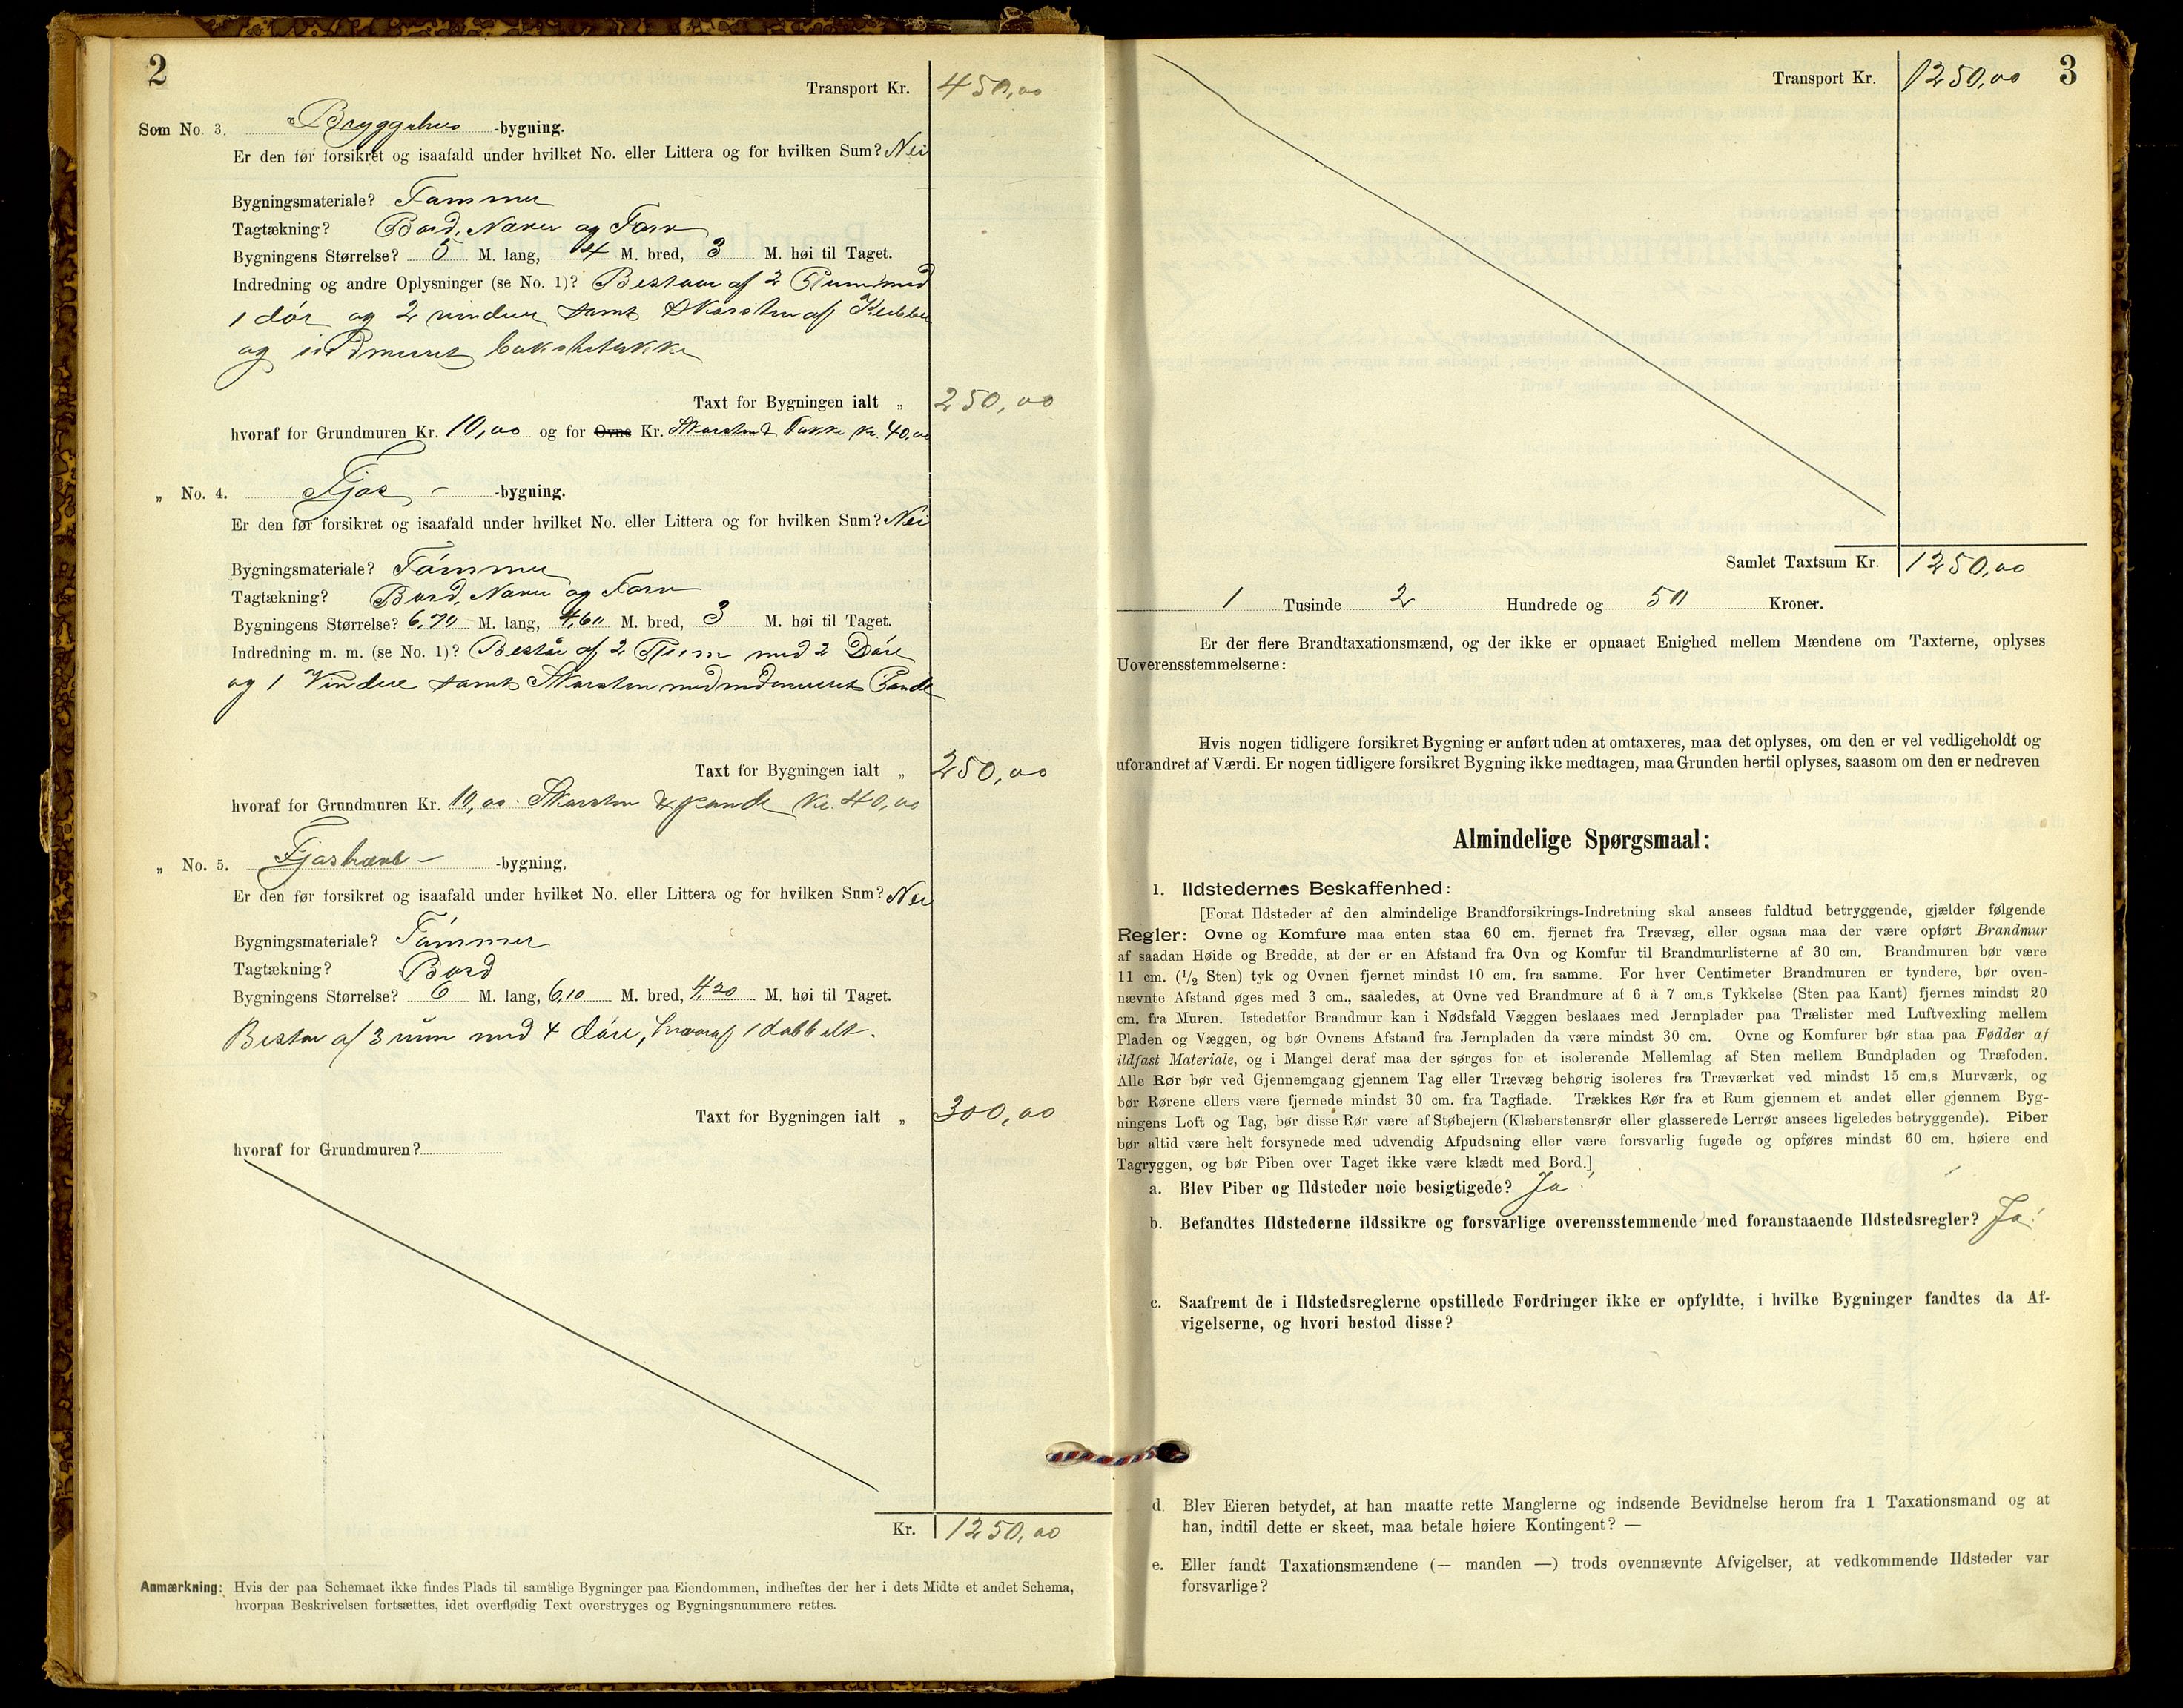 2
Transport Kr. 450,00
Som No. 3. Bryggehus -bygning.
Er den før forsikret og isaafald under hvilket No. eller Littera og for hvilken Sum? Nei
Bygningsmateriale? Tømmer
Tagtækning? Bord, Næver og Torv
Bygningens Størrelse? 5 M. lang, 4 M. bred, 3 M. høi til Taget.
Indredning og andre Oplysninger (se No. 1)? Bestaar af 2 Rum med
1 dør og 2 vinduer samt Skorsten af Kleber
og indmuret bakstetakke
Taxt for Bygningen ialt „ 250,00
hvoraf for Grundmuren Kr. 10,00 og for Ovne Kr. Skorsten & Takke Kr. 40,00
„ No. 4. Fjøs - -bygning.
Er den før forsikret og isaafald under hvilket No. eller Littera og for hvilken Sum? Nei
Bygningsmateriale? Tømmer
Tagtækning? Bord, Næver og Torv
Bygningens Størrelse? 6,70 M. lang, 4,60 M. bred, 3 M. høi til Taget.
Indredning m. m. (se No. 1)? Består af 2 Rum med 2 Døre
og 1 Vindue samt Skorsten med indmuret Pande
Taxt for Bygningen ialt „ 250,00
hvoraf for Grundmuren Kr. 10,00. Skorsten & pande Kr. 40,00
„ No. 5. -bygning,
Er den før forsikret og isaafald under hvilket No. eller Littera og for hvilken Sum? Nei
Bygningsmateriale? Tømmer
Tagtækning? Bord
Bygningens Størrelse? 6 M. lang, 6,10 M. bred, 4,20 M. høi til Taget.
Bestaar af 3 rum med 4 døre, hvoraf 1 dobbelt.
Taxt for Bygningen ialt „ 300,00
hvoraf for Grundmuren?
Kr. 1250,00
Anmærkning: Hvis der paa Schemaet ikke findes Plads til samtlige Bygninger paa Eiendommen, indheftes der her i dets Midte et andet Schema,
hvorpaa Beskrivelsen fortsættes, idet overflødig Text overstryges og Bygningsnummere rettes.
Transport Kr. 1250,00 3
Samlet Taxtsum Kr. 1250,00
1 Tusinde 2 Hundrede og 50 Kroner.
Er der flere Brandtaxationsmænd, og der ikke er opnaaet Enighed mellem Mændene om Taxterne, oplyses
Uoverensstemmelserne:
Hvis nogen tidligere forsikret Bygning er anført uden at omtaxeres, maa det oplyses, om den er vel vedligeholdt og
uforandret af Værdi. Er nogen tidligere forsikret Bygning ikke medtagen, maa Grunden hertil oplyses, saasom om den er nedreven
Almindelige Spørgsmaal:
1. Ildstedernes Beskaffenhed:
[Forat Ildsteder af den almindelige Brandforsikrings-Indretning skal ansees fuldtud betryggende, gjælder følgende
Regler: Ovne og Komfure maa enten staa 60 cm. fjernet fra Trævæg, eller ogsaa maa der være opført Brandmur
af saadan Høide og Bredde, at der er en Afstand fra Ovn og Komfur til Brandmurlisterne af 30 cm. Brandmuren bør være
11 cm. (1/2 Sten) tyk og Ovnen fjernet mindst 10 cm. fra samme. For hver Centimeter Brandmuren er tyndere, bør oven-
nævnte Afstand øges med 3 cm., saaledes, at Ovne ved Brandmure af 6 à 7 cm.s Tykkelse (Sten paa Kant) fjernes mindst 20
cm. fra Muren. Istedetfor Brandmur kan i Nødsfald Væggen beslaaes med Jernplader paa Trælister med Luftvexling mellem
Pladen og Væggen, og bør Ovnens Afstand fra Jernpladen da være mindst 30 cm. Ovne og Komfurer bør staa paa Fødder af
ildfast Materiale, og i Mangel deraf maa der sørges for et isolerende Mellemlag af Sten mellem Bundpladen og Træfoden.
Alle Rør bør ved Gjennemgang gjennem Tag eller Trævæg behørig isoleres fra Træværket ved mindst 15 cm.s Murværk, og
bør Rørene ellers være fjernede mindst 30 cm. fra Tagflade. Trækkes Rør fra et Rum gjennem et andet eller gjennem Byg-
ningens Loft og Tag, bør disse Rør være af Støbejern (Klæberstensrør eller glasserede Lerrør ansees ligeledes betryggende). Piber
bør altid være helt forsynede med udvendig Afpudsning eller være forsvarlig fugede og opføres mindst 60 cm. høiere end
Tagryggen, og bør Piben over Taget ikke være klædt med Bord.]
a. Blev Piber og Ildsteder nøie besigtigede? Ja!
b. Befandtes Ildstederne ildssikre og forsvarlige overensstemmende med foranstaaende Ildstedsregler? Ja!
c. Saafremt de i Ildstedsreglerne opstillede Fordringer ikke er opfyldte, i hvilke Bygninger fandtes da Af-
vigelserne, og hvori bestod disse?
d. Blev Eieren betydet, at han maatte rette Manglerne og indsende Bevidnelse herom fra 1 Taxationsmand og at
han, indtil dette er skeet, maa betale høiere Kontingent? —
e. Eller fandt Taxationsmændene (— manden —) trods ovennævnte Afvigelser, at vedkommende Ildsteder var
forsvarlige?